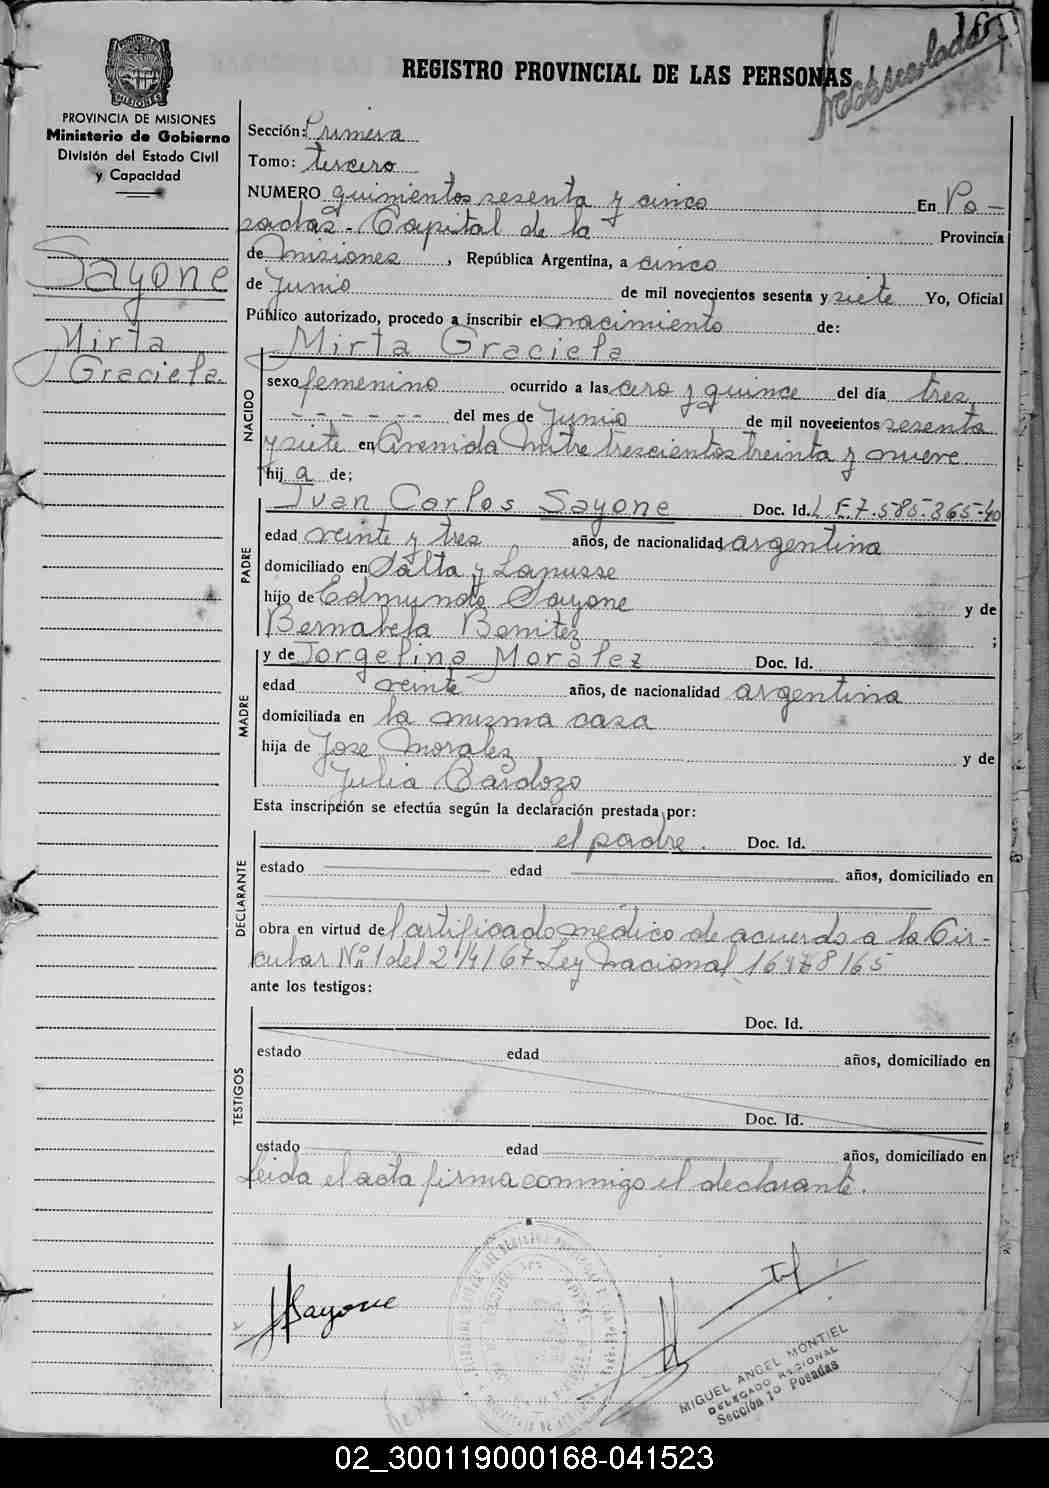 REGISTRO PROVINCIAL DE LAS PERSONAS
PROVINCIA DE MISIONES
Ministerio de Gobierno
División del Estado Civil
y Capacidad
Sayone
Mirta
Graciela
Sección: Primera
Tomo: tercero
NUMERO quinientos sesenta y cinco En Po-
sadas - Capital de la Provincia
de Misiones, República Argentina, a cinco
de Junio de mil novecientos sesenta y siete Yo, Oficial
Público autorizado, procedo a inscribir el nacimiento de:
Mirta Graciela
NACIDO
sexo femenino ocurrido a las cero y quince del día tres
- - - - - - del mes de Junio de mil novecientos sesenta
y siete en Avenida Mitre trescientos treinta y nueve
hij a de;
PADRE
Juan Carlos Sayone Doc. Id. L.E.7.585.365-
edad veinte y tres años, de nacionalidad argentina
domiciliado en Salta y Lanusse
hijo de Edmundo Sayone y de
Bernabela Benitez ;
MADRE
y de Jorgelina Moralez Doc. Id.
edad veinte años, de nacionalidad argentina
domiciliada en la misma casa
hija de Jose Moralez y de
Julia Cardozo
Esta inscripción se efectúa según la declaración prestada por:
DECLARANTE
el padre. Doc. Id.
estado edad años, domiciliado en
obra en virtud del certificado médico de acuerdo a la Cir-
cular Nº 1 del 21/4/67 Ley Nacional
ante los testigos:
TESTIGOS
Doc. Id.
estado edad años, domiciliado en
Doc. Id.
estado edad años, domiciliado en
Leida el acta firma conmigo el declarante.
Sayone
MIGUEL ANGEL MONTIEL
DELEGADO REGIONAL
Sección 1º Posadas
02_300119000168-041523